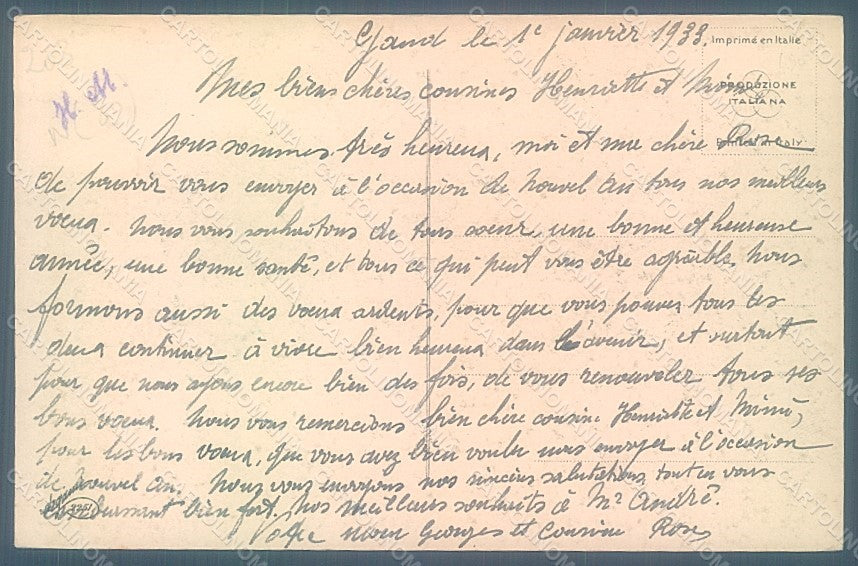 Gand le 1e janvier 1933.
Imprimé en Italie
H. M.
Mes biens chères cousines Henriette et Mimi
PRODUZIONE
ITALIANA
Nous sommes très heureux, moi et me chère Rose
de pouvoir vous envoyer à l'occasion de Nouvel An tous nos meilleurs
voeux. Nous vous souhaitons de tous coeur, une bonne et heureuse
année, une bonne santé, et tous ce qui peut vous être agréable, nous
formons aussi des voeux ardents, pour que vous pouvez tous les
deux continuer à vivre bien heureux dans l'avenir, et surtout
pour que nous ayons encore bien des fois, de vous renouveler tous ses
bons voeux. Nous vous remercions bien chère cousine Henriette et Mimi,
pour les bons voeux, que vous avez bien voulu nous envoyer à l'occasion
de Nouvel An. Nous vous envoyons nos sincères salutations tout en vous
embrassant bien fort. Nos meilleurs souhaits à Mr André.
Georges et Cousine Rose
CARTOLINOMANIA